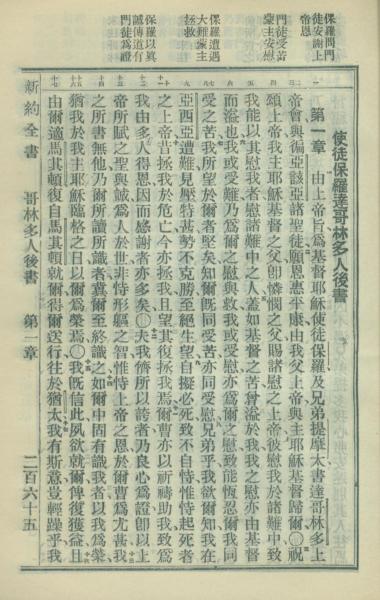 保羅問門
徒安謝上
帝恩
門徒受苦
蒙主安慰
保羅遭遇
大難蒙主
拯救
保羅以真
誠傳道有
門徒爲證
使徒保羅達哥林多人後書
第一章 由上帝旨爲基督耶穌使徒保羅及兄弟提摩太書達哥林多上
帝會與徧亞該亞諸聖徒願恩惠平康由我父上帝與主耶穌基督歸爾〇祝
頌上帝我主耶穌基督之父卽憐憫之父賜諸慰之上帝彼慰我於諸難中致
我能以其慰我者慰諸難中之人蓋如基督之苦旣溢於我我之慰亦由基督
而溢也我或受難乃爲爾之慰與救我或受慰亦爲爾之慰致能恆忍爾我同
受之苦我所望於爾者堅矣知爾旣同受苦亦同受慰兄弟乎我欲爾知我在
亞西亞遭難見壓特甚勢不克勝至絕生望自擬必死致不自恃惟恃起死者
之上帝昔拯我於危亡今亦拯我且望其復拯我焉爾曹亦以祈禱助我致爲
我由多人得恩因而感謝者亦多矣〇夫我儕所以誇者乃良心爲證卽以上
帝所賦之聖與誠爲人於世非恃形軀之智惟恃上帝之恩於爾曹爲尤甚我
之所書無他乃爾所讀所識者冀爾至終識之如爾中固有識我者以我爲榮
猶我於我主耶穌臨格之日以爾爲榮焉〇我旣信此夙欲就爾俾復獲益且
由爾適馬其頓復自馬其頓就爾得爾送行往於猶太我有斯意豈輕躁乎我
新約全書 哥林多人後書 第一章 二百六十五